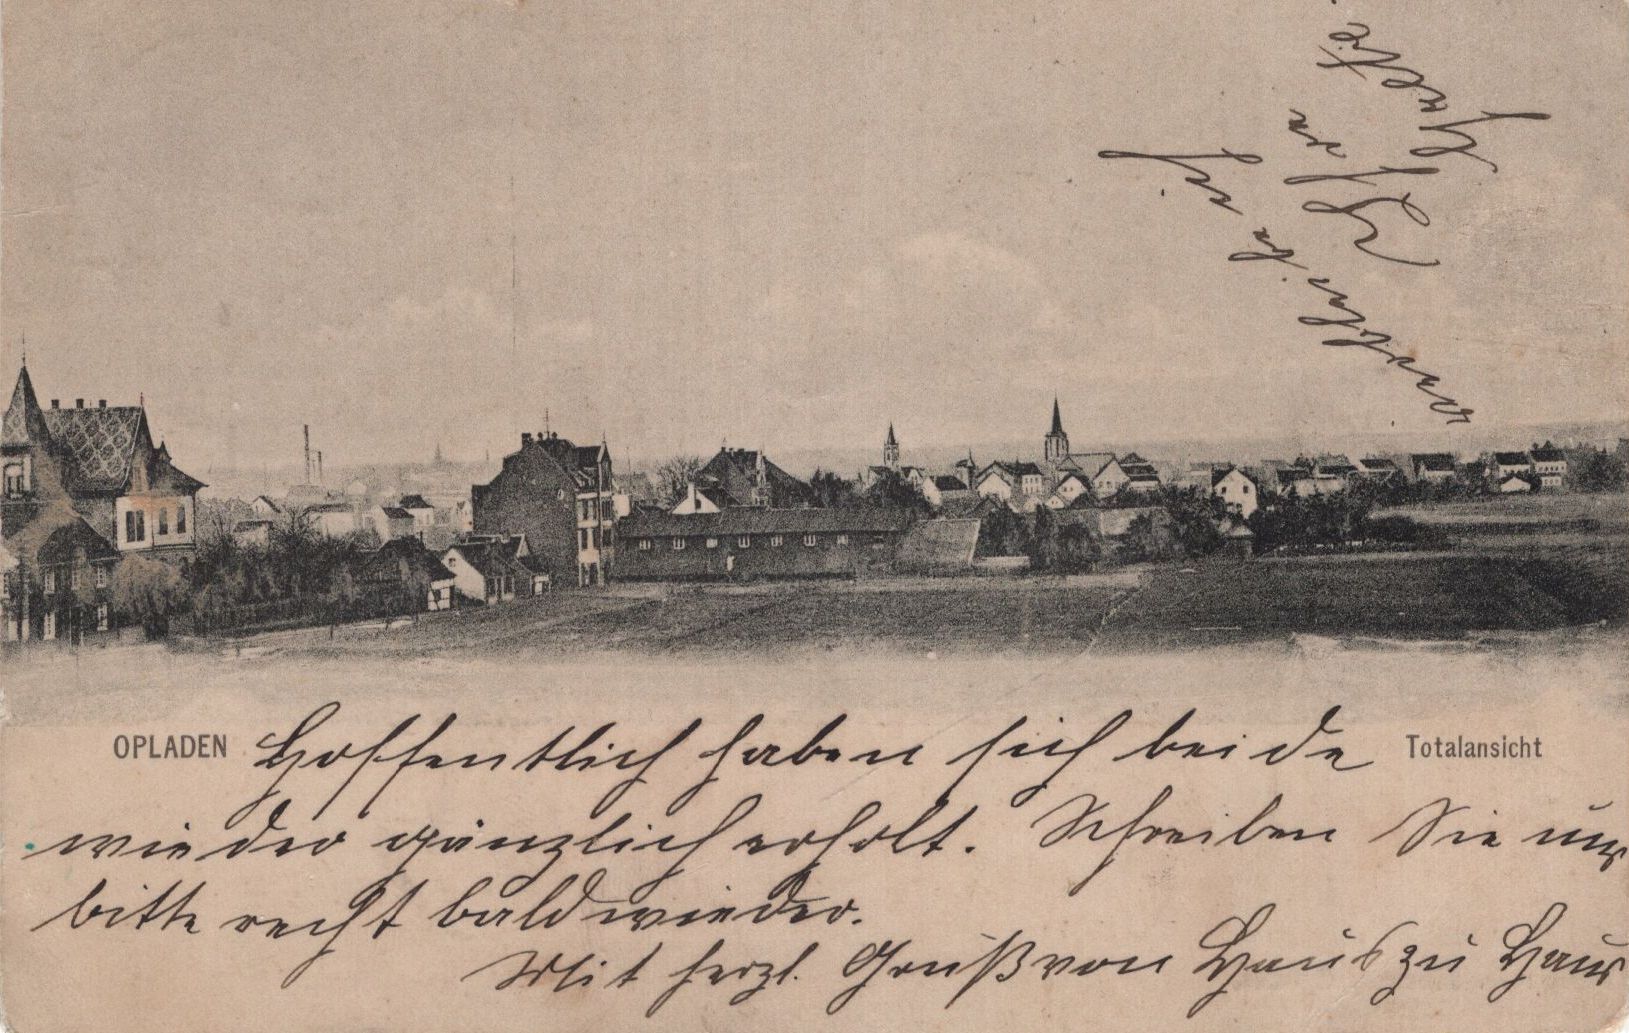 OPLADEN
Totalansicht
Hoffentlich haben sich beide
wieder gänzlich erholt. Schreiben Sie uns
bitte recht bald wieder.
Mit herzl. Gruß von Haus zu Haus
verbleibe ich
Ihre